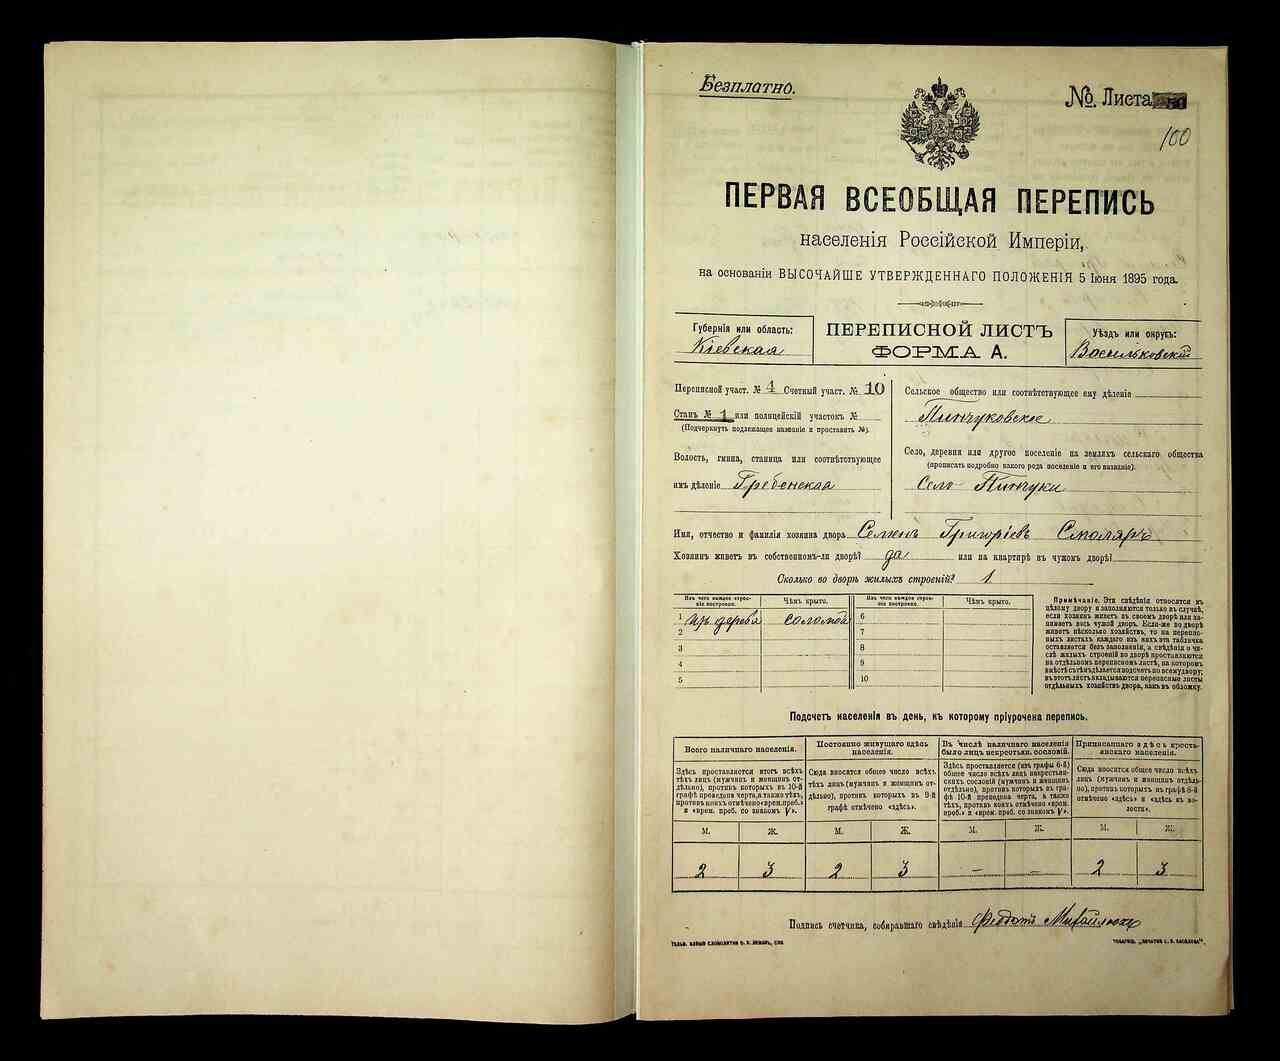 Безплатно.
№ Листа
100
ПЕРВАЯ ВСЕОБЩАЯ ПЕРЕПИСЬ
населенія Россійской Имперіи,
на основаніи ВЫСОЧАЙШЕ УТВЕРЖДЕННАГО ПОЛОЖЕНІЯ 5 Іюня 1895 года.
Губернія или область:
Кіевская
ПЕРЕПИСНОЙ ЛИСТЪ
ФОРМА А.
Уѣздъ или округъ:
Васильковскій
Переписной участ. № 4 Счетный участ. № 10
Станъ № 1 или полицейскій участокъ №
(Подчеркнуть подлежащее названіе и проставить №).
Волость, гмина, станица или соотвѣтствующее
имъ дѣленіе Гребенская
Сельское общество или соотвѣтствующее ему дѣленіе
Пинчуковское
Село, деревня или другое поселеніе на земляхъ сельскаго общества
(прописать подробно какого рода поселеніе и его названіе).
Село Пинчуки
Имя, отчество и фамилія хозяина двора Семенъ Григоріевъ Смоляръ
Хозяинъ живетъ въ собственномъ-ли дворѣ? да или на квартирѣ въ чужомъ дворѣ?
Сколько во дворѣ жилыхъ строеній? 1
Изъ чего каждое строеніе построено.
Чѣмъ крыто.
Изъ чего каждое строеніе построено.
Чѣмъ крыто.
1 изъ дерева соломой 6
2 7
3 8
4 9
5 10
Примѣчаніе. Эти свѣдѣнія относятся къ
цѣлому двору и заполняются только въ случаѣ,
если хозяинъ живетъ въ своемъ дворѣ или занимаетъ
весь чужой дворъ. Если-же во дворѣ
живетъ нѣсколько хозяйствъ, то на переписныхъ
листахъ каждаго изъ нихъ эта табличка
оставляется безъ заполненія, а свѣдѣнія о числѣ
жилыхъ строеній во дворѣ проставляются
на отдѣльномъ переписномъ листѣ, на которомъ
вмѣстѣ съ тѣмъ дѣлается подсчетъ по всему двору;
въ этотъ листъ вкладываются переписные листы
отдѣльныхъ хозяйствъ двора, какъ въ обложку.
Подсчетъ населенія въ день, къ которому пріурочена перепись.
Всего наличнаго населенія.
Постоянно живущаго здѣсь населенія.
Въ числѣ наличнаго населенія было лицъ некрестьян. сословій.
Приписаннаго здѣсь крестьянскаго населенія.
Здѣсь проставляется итогъ всѣхъ
тѣхъ лицъ (мужчинъ и женщинъ отдѣльно),
противъ которыхъ въ 10-й
графѣ проведена черта, а также тѣхъ,
противъ коихъ отмѣчено «врем. преб.»
и «врем. преб. со знакомъ V».
Сюда вносится общее число всѣхъ
тѣхъ лицъ (мужчинъ и женщинъ отдѣльно),
противъ которыхъ въ 9-й
графѣ отмѣчено «здѣсь».
Здѣсь проставляется (изъ графы 6-й)
общее число всѣхъ лицъ некрестьянскихъ
сословій (мужчинъ и женщинъ
отдѣльно), противъ которыхъ въ графѣ
10-й проведена черта, а также
тѣхъ, противъ коихъ отмѣчено «врем.
преб.» и «врем. преб. со знакомъ V».
Сюда вносится общее число всѣхъ
лицъ (мужчинъ и женщинъ отдѣльно),
противъ которыхъ въ графѣ 8-й
отмѣчено «здѣсь» и «здѣсь въ волости».
М. Ж. М. Ж. М. Ж. М. Ж.
2 3 2 3 – – 2 3
Подпись счетчика, собиравшаго свѣдѣнія